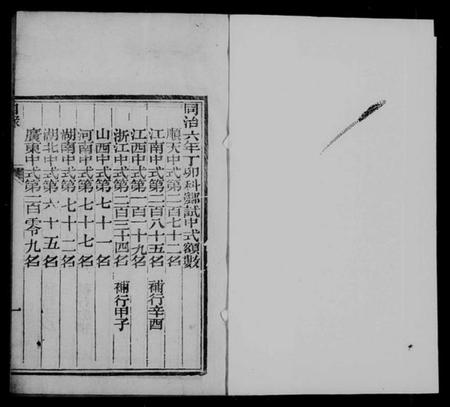 同治六年丁卯科鄉試中式額數
順天中式第二百七十二名
江南中式第二百八十五名 補行辛酉
江西中式第一百十九名
浙江中式第二百三十四名 補行甲子
山西中式第七十一名
河南中式第七十七名
湖南中式第七十二名
湖北中式第六十五名
廣東中式第二百零九名
目錄
一